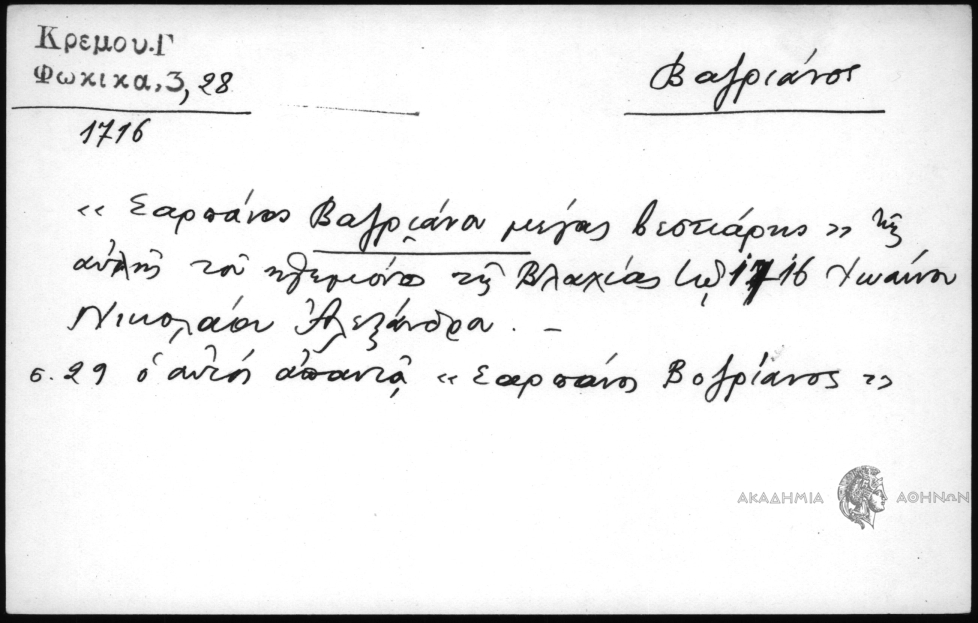 Κρεμου.Γ
Φωκικα,3, 28
Βαγριάνος
1716
« Σαρπάνος Βαγριάνου μέγας βεστιάρης » τῆς
αὐλῆς τοῦ ἡγεμόνος τῆς Βλαχίας τῷ 1716 Ἰωάννου
Νικολάου Ἀλεξάνδρου. –
σ. 29 ὁ αὐτός ἀπαντᾷ « Σαρπάνος Βογριάνος »
ΑΚΑΔΗΜΙΑ ΑΘΗΝΩΝ